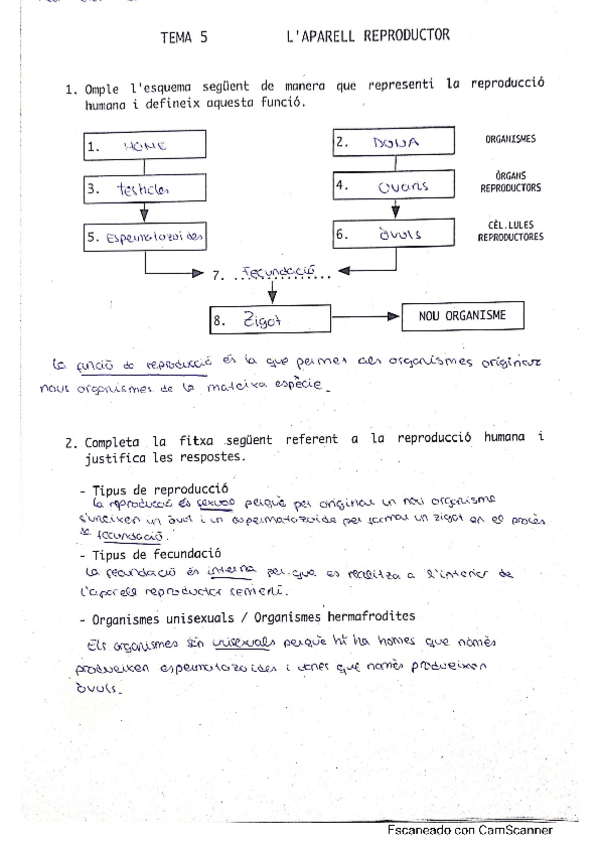 TEMA 5 L'APARELL REPRODUCTOR
1. Omple l'esquema següent de manera que representi la reproducció
humana i defineix aquesta funció.
1. HOME
2. DONA
ORGANISMES
3. testicles
4. ovaris
ÒRGANS
REPRODUCTORS
5. Espermatozoides
6. Òvuls
CÈL.LULES
REPRODUCTORES
7. ..Fecundació...
8. Zigot
NOU ORGANISME
La funció de reproducció és la que permet als organismes originar
nous organismes de la mateixa espècie.
2. Completa la fitxa següent referent a la reproducció humana i
justifica les respostes.
- Tipus de reproducció
La reproducció és sexual perquè per originar un nou organisme
s'uneixen un òvul i un espermatozoide per formar un zigot en el procés
de fecundació.
- Tipus de fecundació
La fecundació és interna per que es realitza a l'interior de
l'aparell reproductor femení.
- Organismes unisexuals / Organismes hermafrodites
Els organismes són unisexuals perquè hi ha homes que només
produeixen espermatozoides i dones que només produeixen
òvuls.
Escaneado con CamScanner